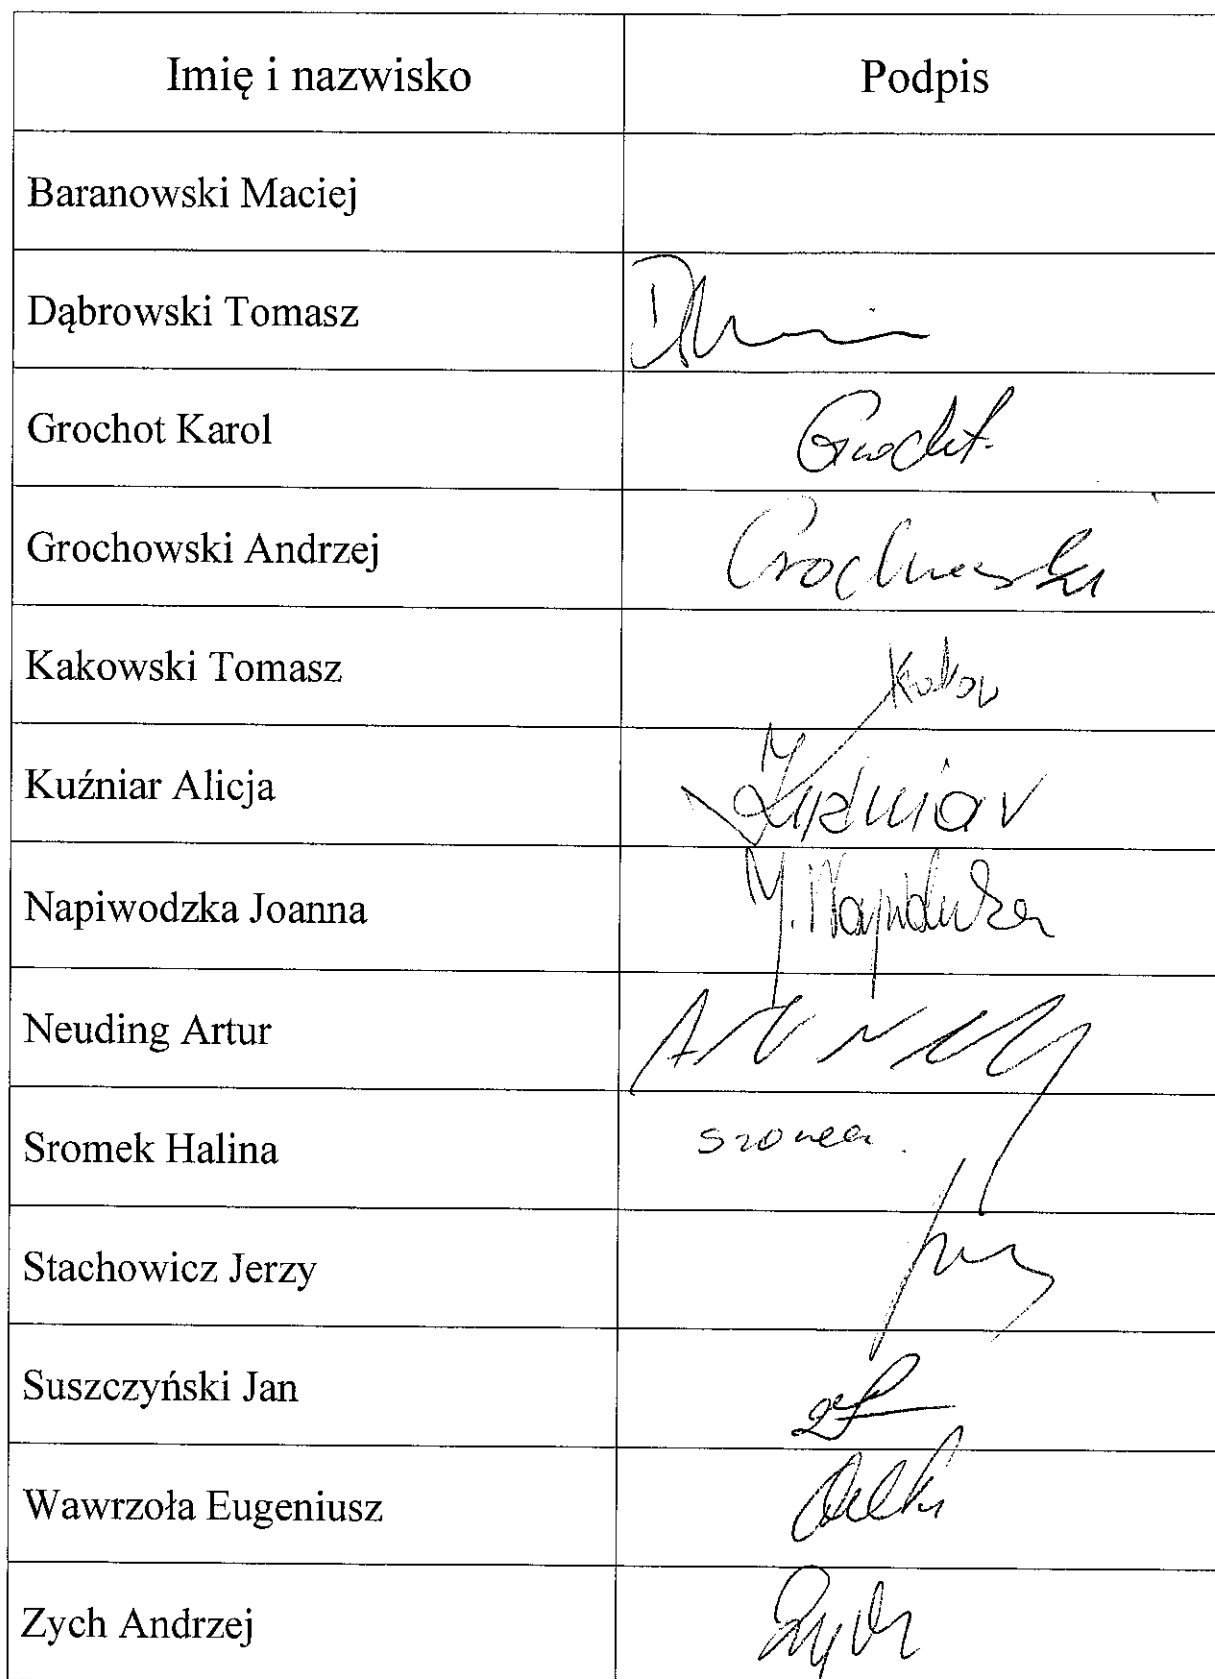 Imię i nazwisko Podpis
Baranowski Maciej
Dąbrowski Tomasz
Grochot Karol Grochot
Grochowski Andrzej Grochowski
Kakowski Tomasz
Kuźniar Alicja Kuźniar
Napiwodzka Joanna
Neuding Artur
Sromek Halina
Stachowicz Jerzy
Suszczyński Jan
Wawrzoła Eugeniusz
Zych Andrzej Zych